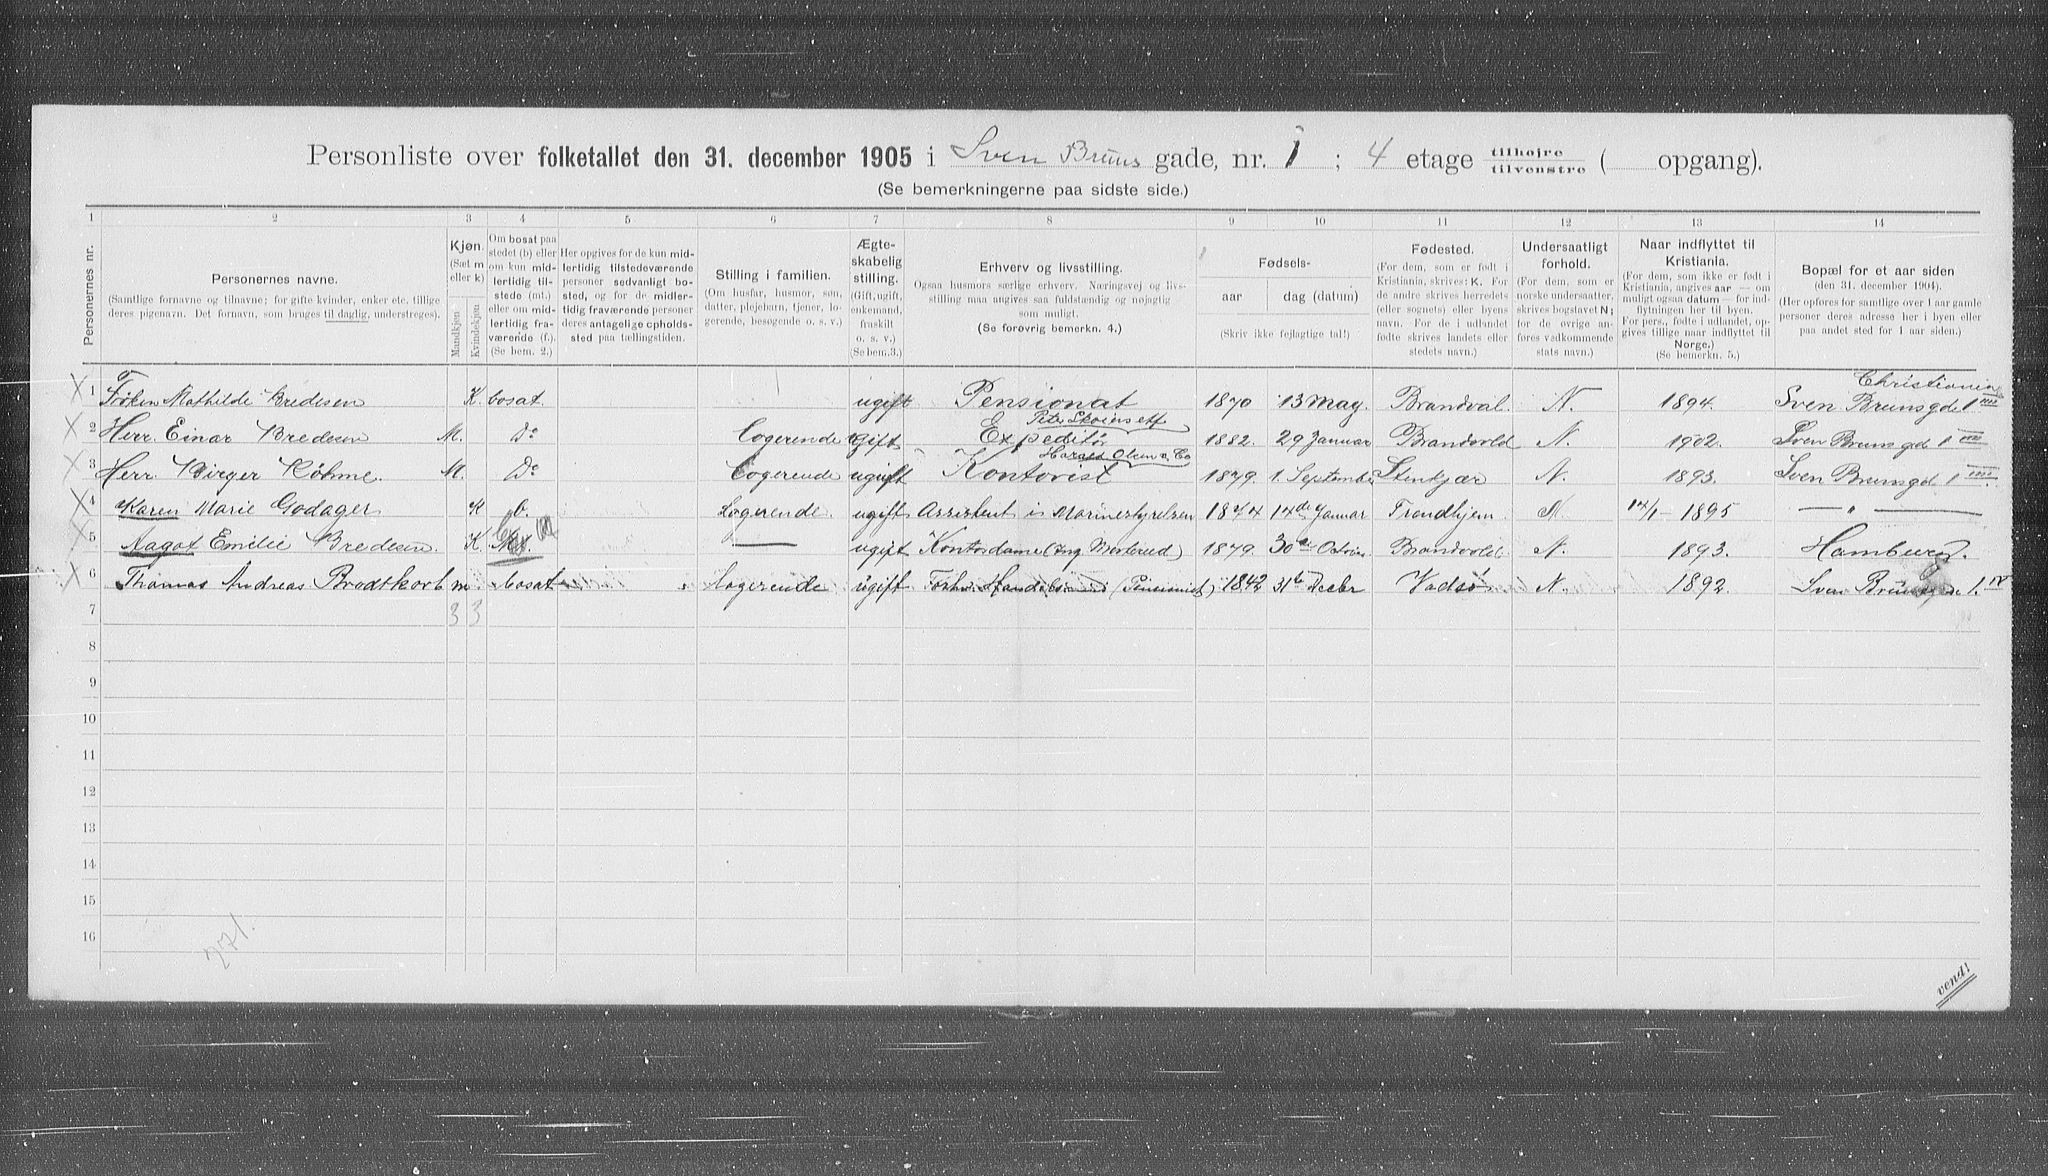 Personliste over folketallet den 31. december 1905 i Sven Bruns gade, nr. 1 ; 4 etage tilhøjre tilvenstre ( opgang).
(Se bemerkningerne paa sidste side.)
1 2 3 4 5 6 7 8 9 10 11 12 13 14
Personernes nr.
Personernes navne.
(Samtlige fornavne og tilnavne; for gifte kvinder, enker etc. tillige
deres pigenavn. Det fornavn, som bruges til daglig, understreges).
Kjøn.
(Sæt m
eller k)
Mandkjøn
Kvindekjøn
Om bosat paa
stedet (b) eller
om kun mid-
lertidig til-
stede (mt.)
eller om mid-
lertidig fra-
værende (f.).
(Se bem. 2.)
Her opgives for de kun mid-
lertidig tilstedeværende
personer sedvanligt bo-
sted, og for de midler-
tidig fraværende personer
deres antagelige opholds-
sted paa tællingstiden.
Stilling i familien.
(Om husfar, husmor, søn,
datter, plejebarn, tjener, lo-
gerende, besøgende o. s. v.)
Ægte-
skabelig
stilling.
(Gift, ugift,
enkemand,
fraskilt
o. s. v.)
(Se bem.3.)
Erhverv og livsstilling.
Ogsaa husmors særlige erhverv. Næringsvej og livs-
stilling maa angives saa fuldstændig og nøjagtig
som muligt.
(Se forøvrig bemerkn. 4.)
Fødsels-
aar dag (datum)
(Skriv ikke fejlagtige tal!)
Fødested.
(For dem, som er født i
Kristiania, skrives: K. For
de andre skrives herredets
(eller sognets) eller byens
navn. For de i udlandet
fødte skrives landets eller
stedets navn.)
Undersaatligt
forhold.
(For norske undersaatter,
skrives bogstavet N;
for de øvrige an-
føres vedkommende
stats navn.)
Naar indflyttet til
Kristiania.
(For dem, som ikke er født i
Kristiania, angives aar — om
muligt ogsaa datum — for ind-
flytningen her til byen.
For pers., fødte i udlandet, op-
gives tillige naar indflyttet til
Norge.)
(Se bemerkn. 5.)
Bopæl for et aar siden
(den 31. december 1904).
(Her opføres for samtlige over 1 aar gamle
personer deres adresse her i byen eller
paa andet sted for 1 aar siden.)
Christiania
1 Frøken Mathilde Bredesen K. bosat ugift Pensionat 1870 13 May. Brandval. N. 1894. Sven Brunsgde 1
2 Herr Einar Bredesen M. Do Logerende ugift Expeditør 1882. 29 Januar Brandvold N. 1902. Sven Brunsgd 1
Harald Olsen & Co
3 Herr Birger Bøhme M. Do Logerende ugift Kontorist 1879. 1. September Stenkjær N. 1893. Sven Brunsgd 1
4 Karen Marie Godager K b. Logerende. ugift Assistent i Marinestyrelsen 1844 14de Januar Trondhjem N 14/1 - 1895 — " —
5 Aagot Emilie Bredesen. K. — ugift Kontordame 1879. 30 Octbr. Brandvold. N. 1893. Hamburg.
6 Thomas Andreas Brodtkorb m bosat Logerende ugift (Pensionist) 1842 31te Decbr Vadsø N. 1892. Sven Brunsgde 1. IV
7 3 3
8
9
10
11
12
13
14
15
16
271.
vend!